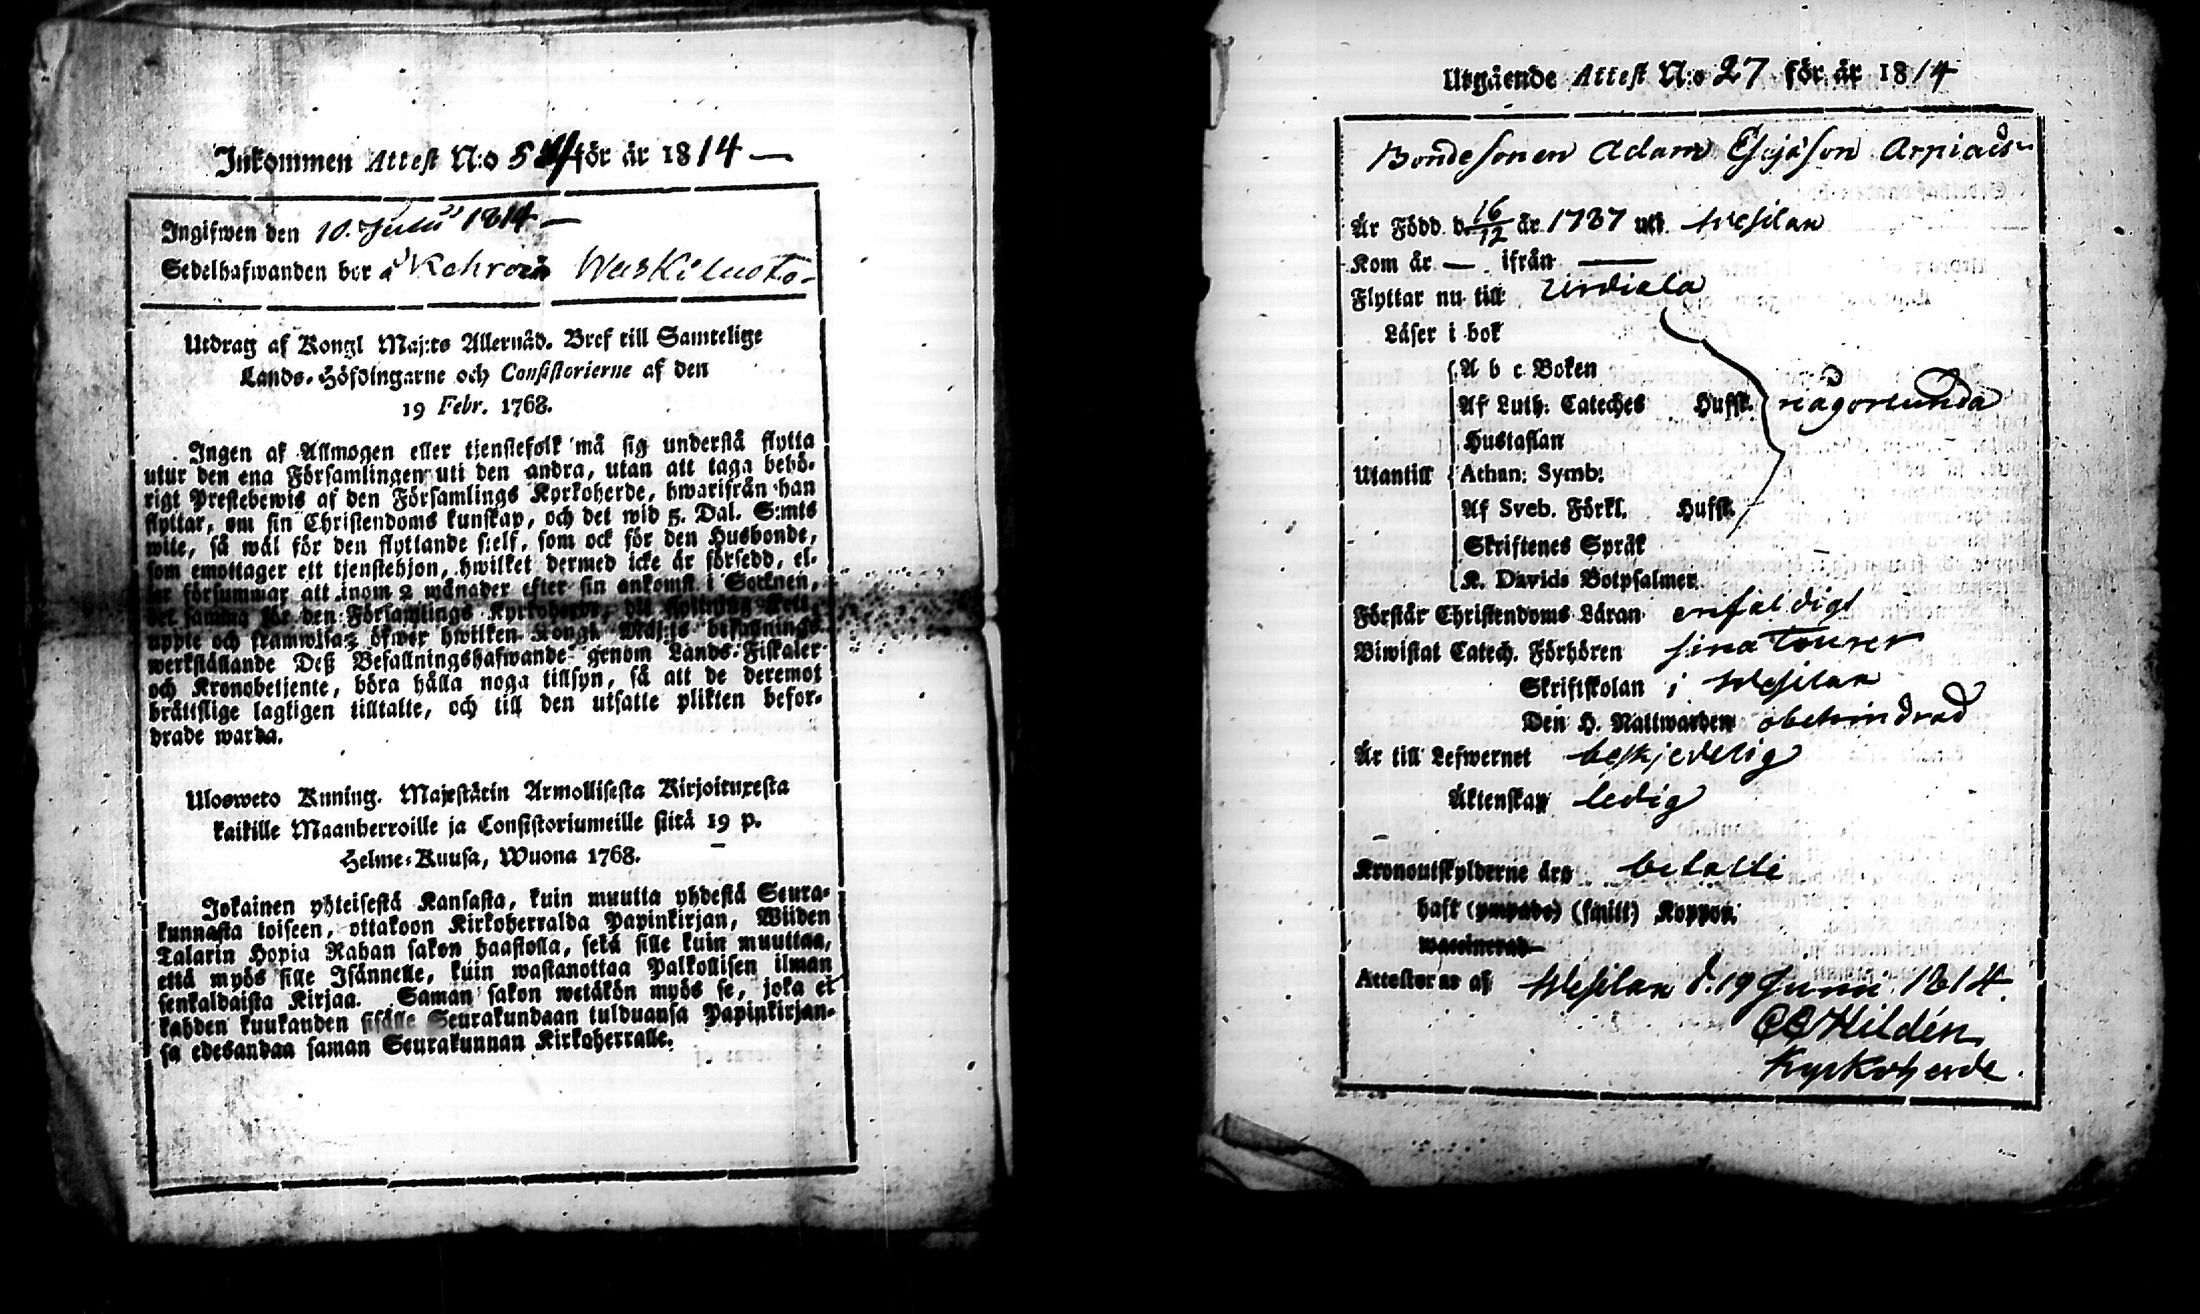 Inkommen Attest N:o 54 för år 1814 —
Ingifwen den 10. Julii 1814 —
Sedelhafwanden bor å Kehro Waskiluoto
Utdrag af Kongl Maj:ts Allernåd. Bref till Samtelige
Lands-Höfdingarne och Consistorierne af den
19 Febr. 1768.
Ingen af Allmogen eller tjenstefolk må sig understå flytta
utur den ena Församlingen uti den andra, utan att taga behö-
rigt Prestebewis af den Församlings Kyrkoherde, hwarifrån han
flyttar, om sin Christendoms kunskap, och det wid 5. Dal. S:mts
wite, så wäl för den flyttande sielf, som ock för den Husbonde,
som emottager ett tjenstehjon, hwilket dermed icke är försedd, el-
ler försummar att inom 2 månader efter sin ankomst i Socknen,
det samma för den Församlings Kyrkoherde
uppte och framwisa; öfwer hwilken Kongl. Maj:ts
werkställande Deß Befallningshafwande genom Lands-Fiskaler
och Kronobetjente, böra hålla noga tillsyn, så att de deremot
bråttslige lagligen tilltalte, och till den utsatte plikten befor-
drade warda.
Ulosweto Kuning. Majestätin Armollisesta Kirjoituxesta
kaikille Maanherroille ja Consistoriumeille siitä 19 p.
Helme-Kuusa, Wuona 1768.
Jokainen yhteisestä Kansasta, kuin muutta yhdestä Seura-
kunnasta toiseen, ottakoon Kirkoherralda Papinkirjan, Wiiden
Talarin Hopia Rahan sakon haastolla, sekä sille kuin muuttaa,
että myös sille Isännelle, kuin wastanottaa Palkollisen ilman
senkaldaista Kirjaa. Saman sakon wetäkön myös se, joka ei
kahden kuukauden sisälle Seurakundaan tulduansa Papinkirjan-
sa edesandaa saman Seurakunnan Kirkoherralle.
Utgående Attest N:o 27 för år 1814
Bondesonen Adam Esajäson Arpiais
Är Född d. 16/12 år 1787 uti Wesilax
Kom år — ifrån —
Flyttar nu till Urdiala
Läser i bok
A b c Boken
Af Luth: Cateches Hufst. någorlunda
Hustaflan
Utantill Athan: Symb:
Af Sveb. Förkl. Hufst.
Skriftenes Språk
K. Davids Botpsalmer
Förstår Christendoms Läran enfaldigt
Biwistat Catech. Förhören sina Tourer
Skriftskolan i Wesilax
Den H. Nattwarden obehindrad
Är till Lefwernet beskjedelig
Äktenskap ledig
Kronoutskylderne äro betalte
haft (ympade) (smitt) Koppor.
waccinerad
Attesteras af Wesilax d. 19 Junii 1814.
CC Hildén
Kyrkoherde.